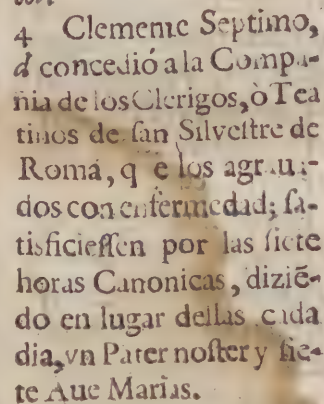 4 Clemente Septimo,
d concedió a la Compa-
ñia de los Clerigos, ò Tea
tinos de san Silvestre de
Roma, q e los agraui-
dos con enfermedad; sa-
tisficiessen por las siete
horas Canonicas, diziē-
do en lugar dellas cada
dia, vn Pater noster y sie-
te Aue Marias.